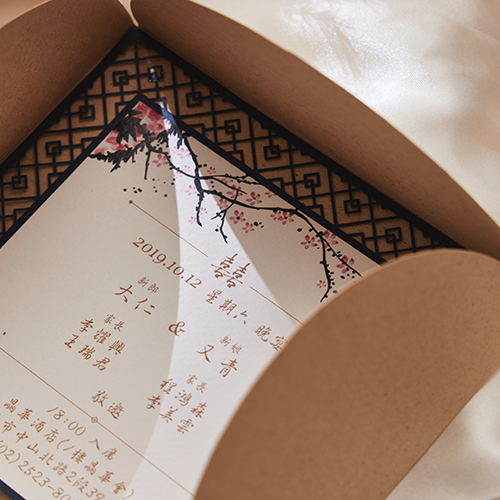 囍
2019.10.12 星期六 晚宴
新郎 新娘
大仁 & 又青
家長 家長
李耀興 程鴻森
王瑞君 李美雲
敬邀
18:00 入席
晶華酒店(1樓晶華會)
市中山北路2段39
(02) 2523-80